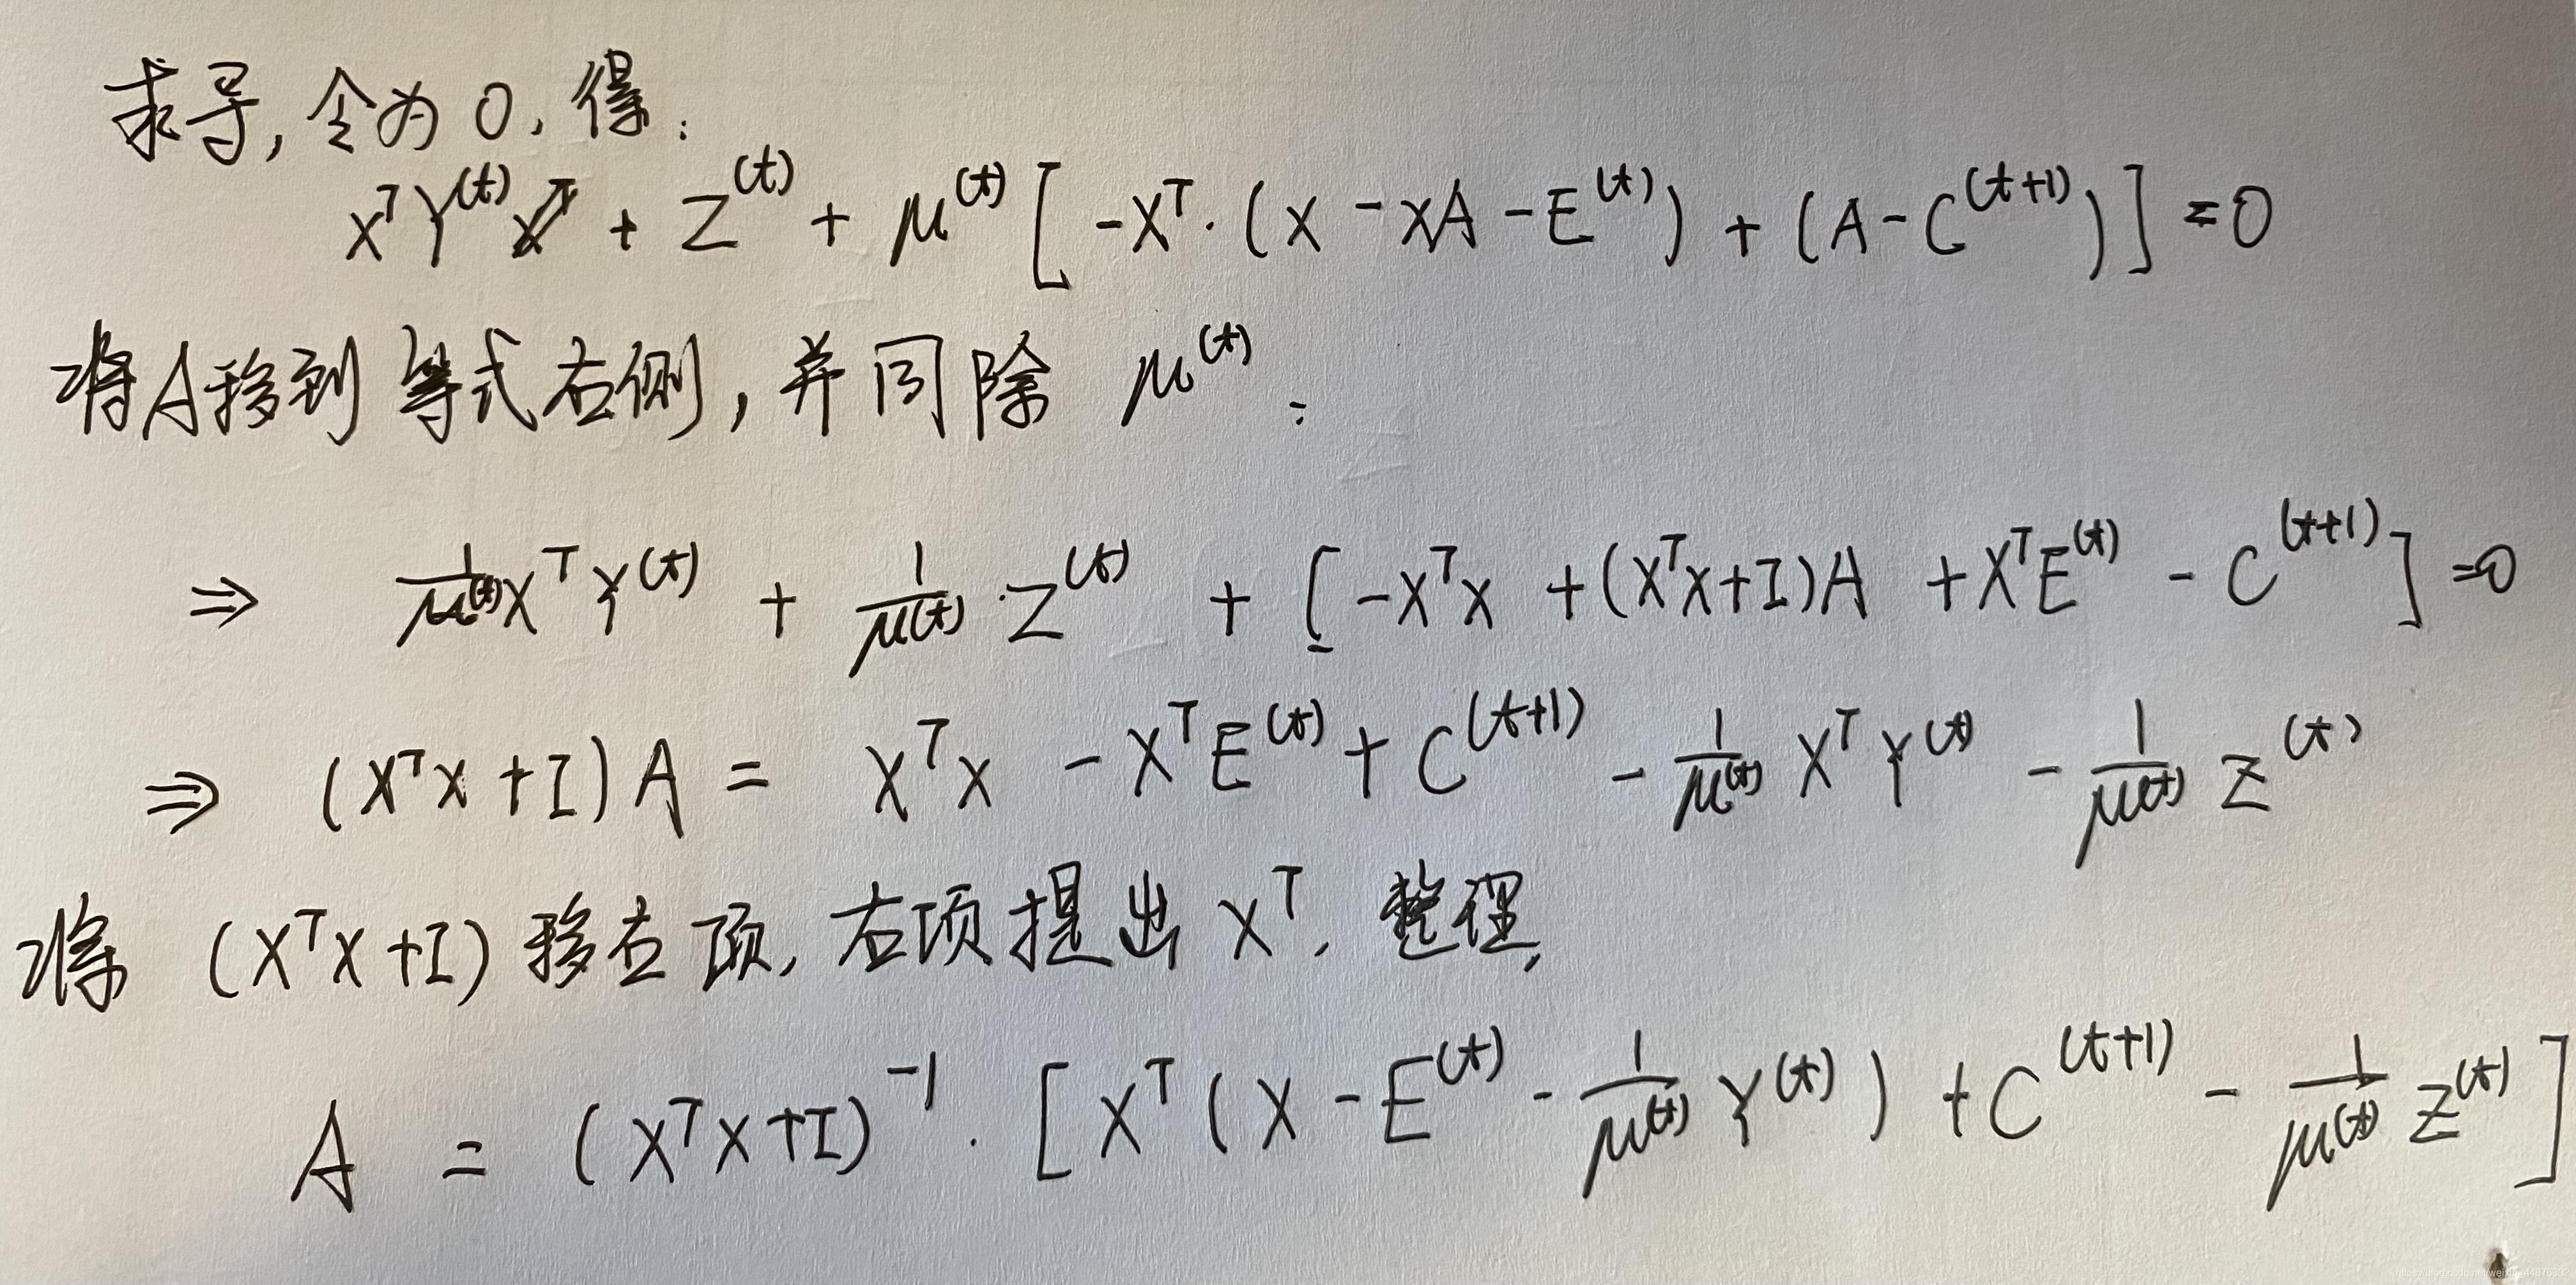 求导,令为 0,得:
X^T Y^(t) + Z^(t) + μ^(t) [ -X^T · (X - XA - E^(t)) + (A - C^(t+1)) ] = 0
将A移到等式右侧,并同除 μ^(t):
⇒ 1/μ^(t) X^T Y^(t) + 1/μ^(t) · Z^(t) + [ -X^T X + (X^T X + I)A + X^T E^(t) - C^(t+1) ] = 0
⇒ (X^T X + I) A = X^T X - X^T E^(t) + C^(t+1) - 1/μ^(t) X^T Y^(t) - 1/μ^(t) Z^(t)
将 (X^T X + I) 移右项,右项提出 X^T,整理,
A = (X^T X + I)^-1 · [ X^T (X - E^(t) - 1/μ^(t) Y^(t)) + C^(t+1) - 1/μ^(t) Z^(t) ]